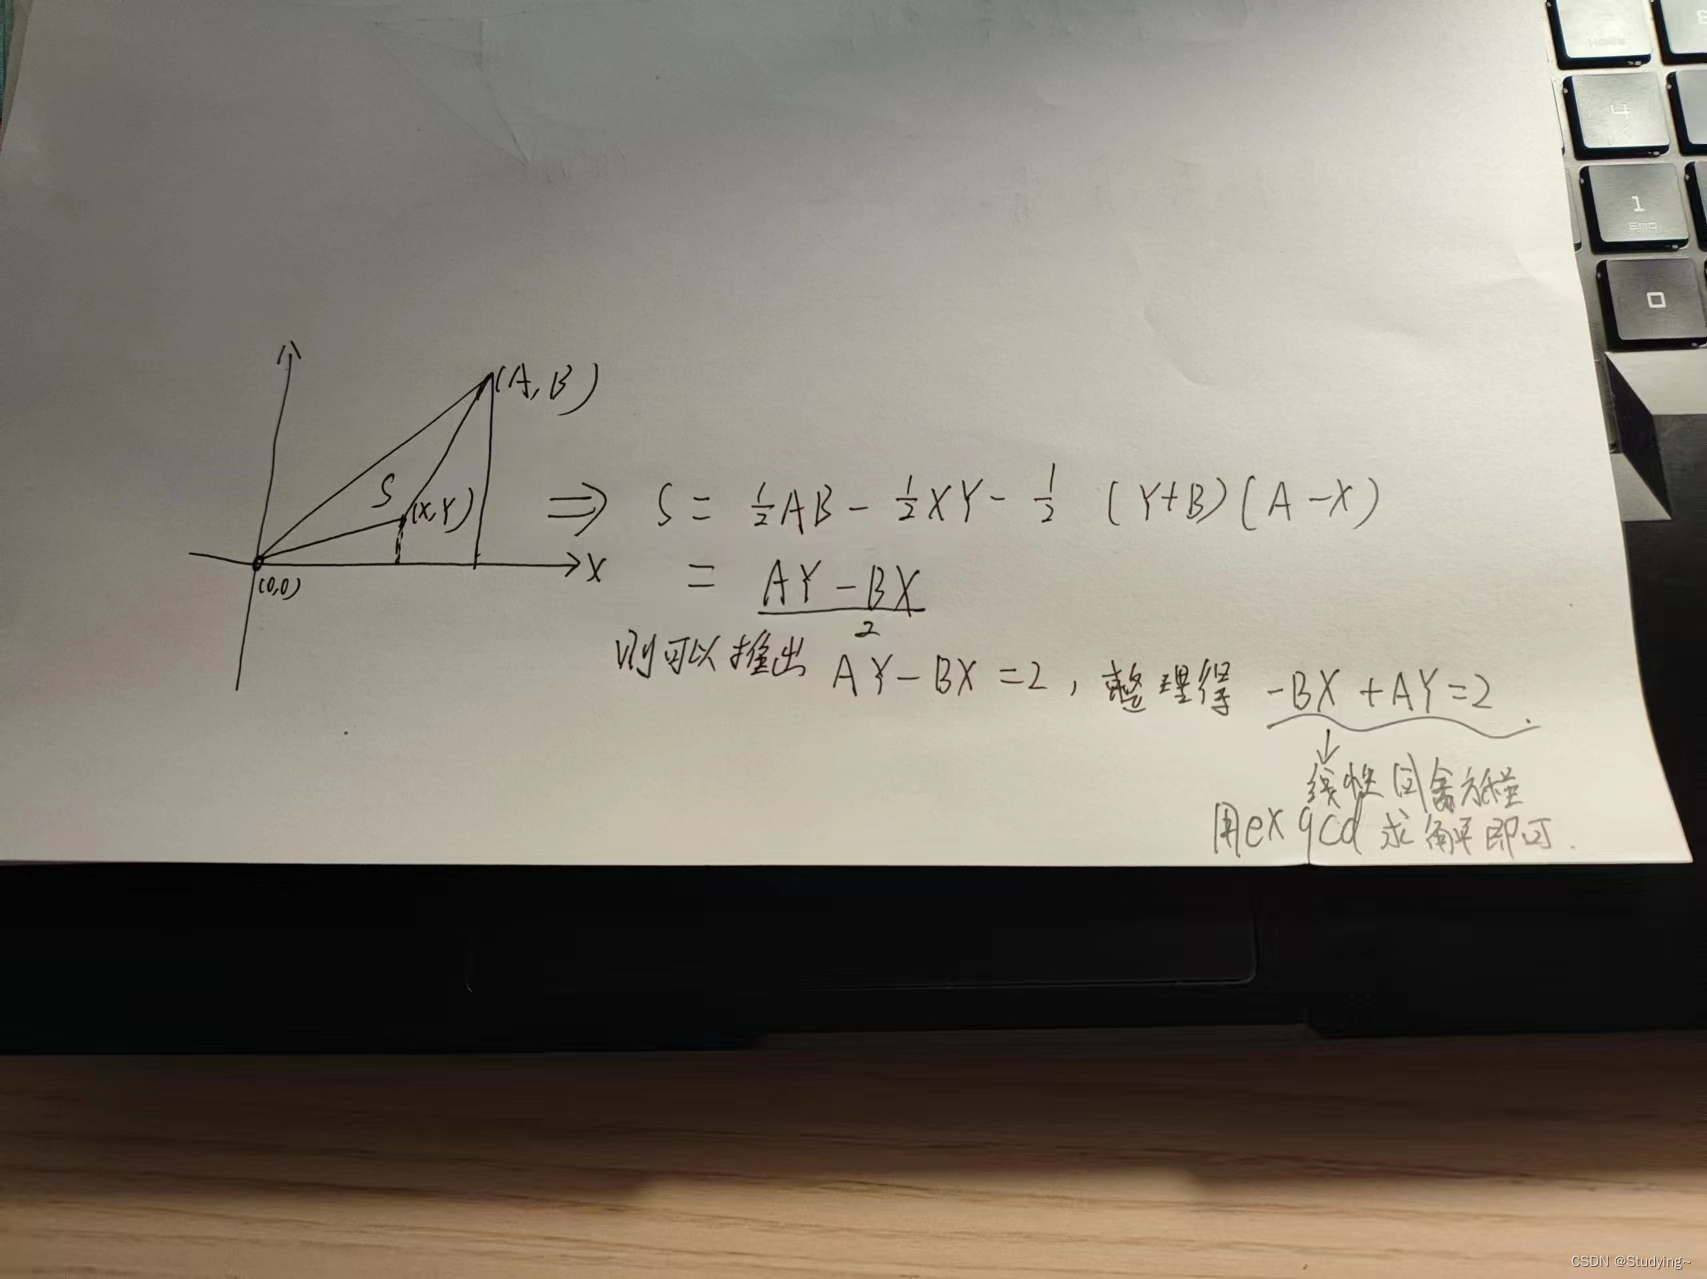 (A,B)
S
(X,Y)
(0,0)
X
⇒ S = ½AB - ½XY - ½ (Y+B)(A-X)
= (AY-BX)/2
则可以推出 AY-BX=2, 整理得 -BX+AY=2.
↓
线性同余方程
用exgcd求解即可.
4
1
End
0
CSDN @Studying~